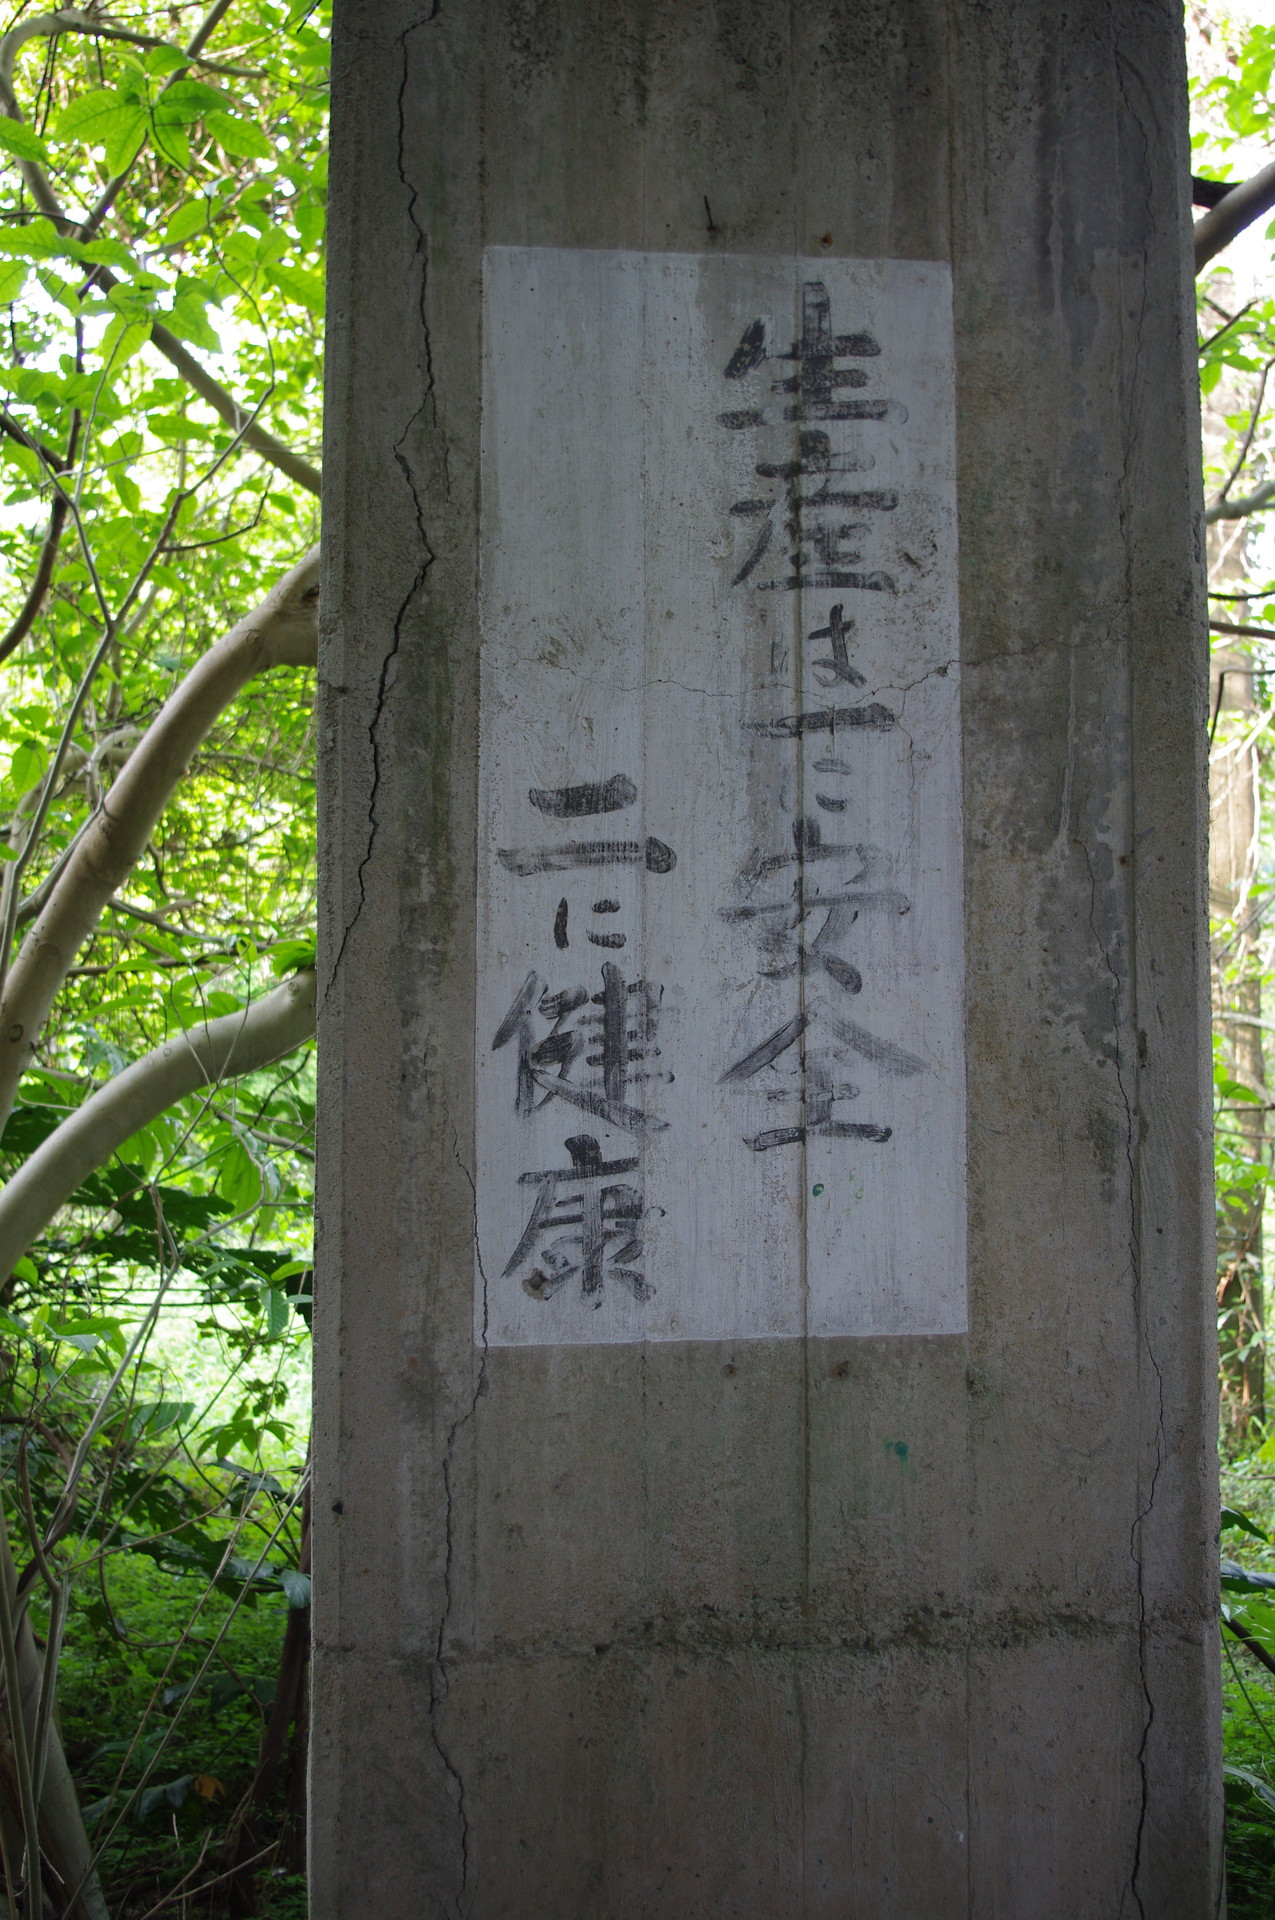 生産は一に安全
二に健康